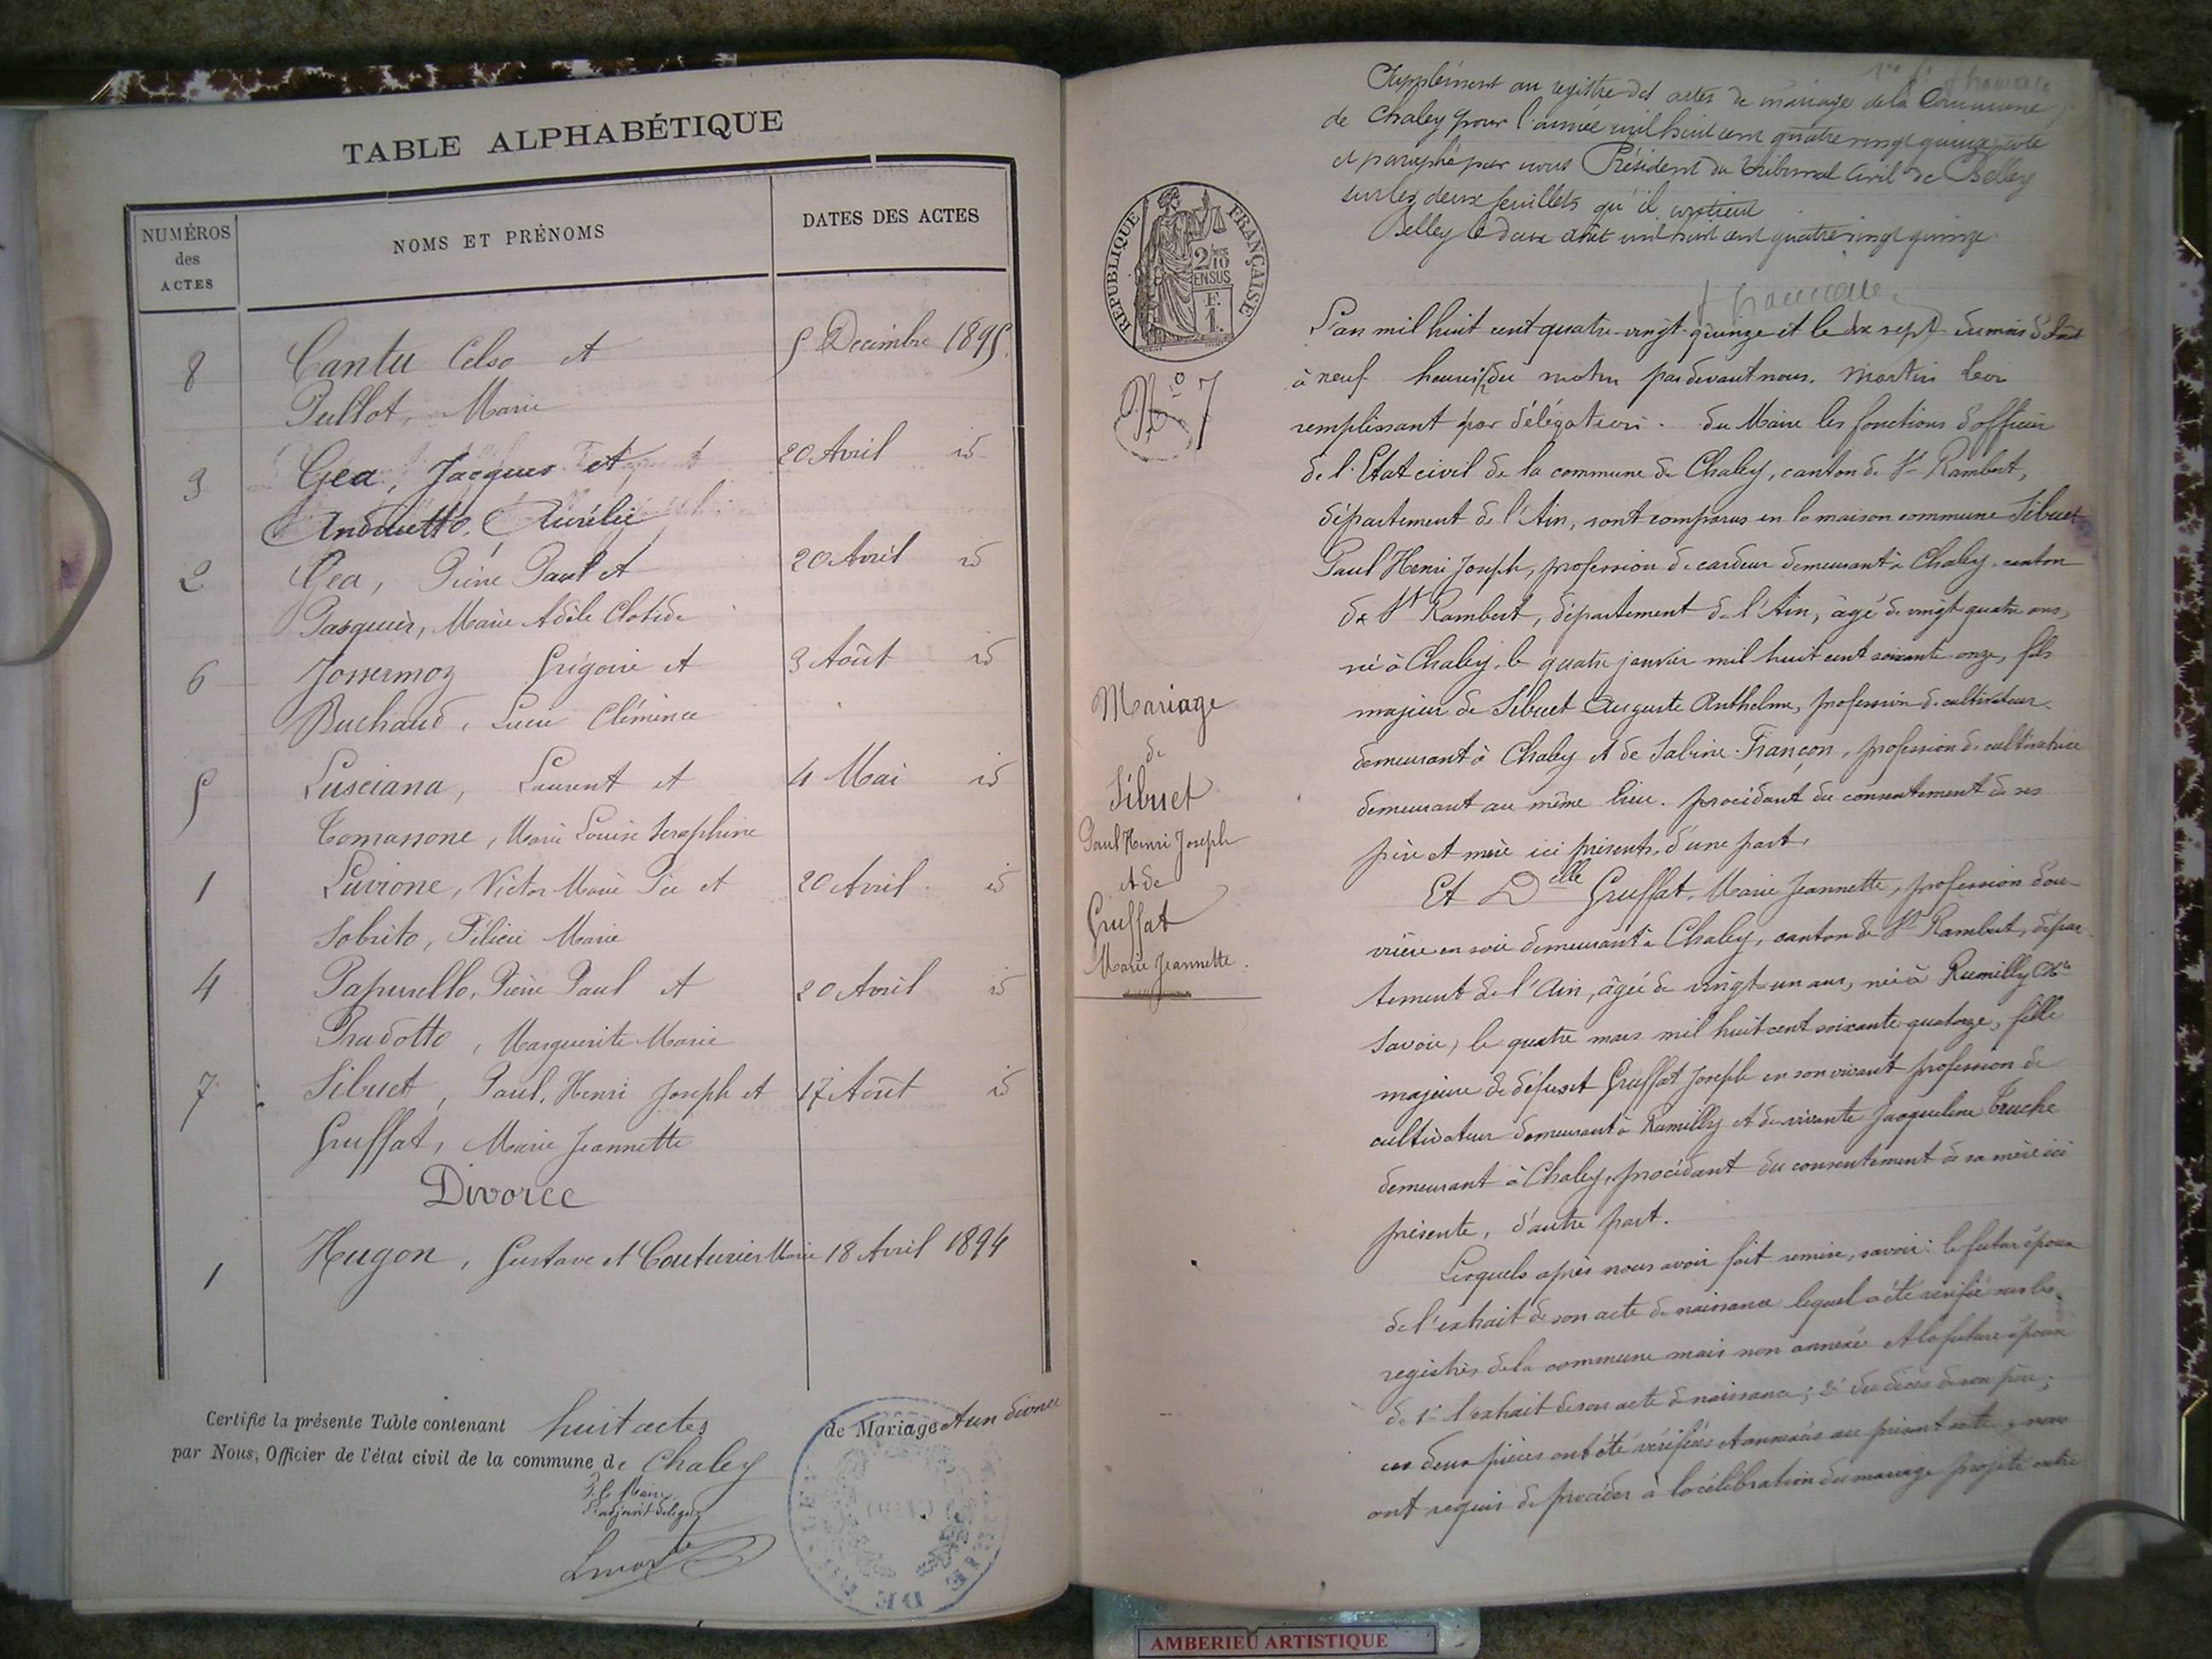 TABLE ALPHABÉTIQUE
NUMÉROS des ACTES
NOMS ET PRÉNOMS
DATES DES ACTES
8 Cantu Celso et 5 Décembre 1895
Pullot, Marie
3 Gea, Jacques et 20 Avril id
Andruetto, Aurélie
2 Gea, Pierre Paul et 20 Avril id
Pasquier, Marie Adèle Clotide
6 Jossermoz Grégoire et 3 Août id
Buchaud, Lucie Clémence
5 Lusciana, Laurent et 4 Mai id
Tomassone, Marie Louise Seraphine
1 Luvione, Victor Marie Pie et 20 Avril id
Sobrito, Félicie Marie
4 Papurello, Pierre Paul et 20 Avril id
Pradotto, Marguerite Marie
7 Sibuet, Paul, Henri Joseph et 17 Août id
Gruffat, Marie Jeannette
Divorce
1 Hugon, Gustave et Couturier Marie 18 Avril 1894
Certifie la présente Table contenant huit actes de Mariage et un divorce
par Nous, Officier de l'état civil de la commune de Chaley
P. le Maire
L'adjoint délégué
Supplément au registre des actes de mariage de la Commune
de Chaley pour l'année mil huit cent quatre vingt quinze coté
et paraphé par nous Président du Tribunal Civil de Belley
sur les deux feuillets qu'il contient
Belley le douze août mil huit cent quatre vingt quinze
RÉPUBLIQUE FRANÇAISE
2/10 EN SUS
F. 1.
No 7
Mariage
de
Sibuet
Paul Henri Joseph
et de
Gruffat
Marie Jeannette.
L'an mil huit cent quatre-vingt-quinze et le dix sept du mois d'Août
à neuf heures du matin par devant nous. Martin Léon
remplissant par délégation du Maire les fonctions d'officier
de l'Etat civil de la commune de Chaley, canton de St Rambert,
département de l'Ain, sont comparus en la maison commune Sibuet
Paul Henri Joseph, profession de cardeur demeurant à Chaley, canton
de St Rambert, département de l'Ain, âgé de vingt quatre ans,
né à Chaley, le quatre janvier mil huit cent soixante onze, fils
majeur de Sibuet Auguste Anthelme, profession de cultivateur
demeurant à Chaley et de Sabine Françon, profession de cultivatrice
demeurant au même lieu. procédant du consentement de ses
père et mère ici présents, d'une part,
Et Delle Gruffat, Marie Jeannette, profession d'ou-
vrière en soie demeurant à Chaley, canton de St Rambert, dépar
tement de l'Ain, âgée de vingt-un ans, née à Rumilly (Hte
Savoie) le quatre mars mil huit cent soixante quatorze, fille
majeure de défunt Gruffat Joseph en son vivant profession de
cultivateur demeurant à Rumilly et de vivante Jacqueline Truche
demeurant à Chaley, procédant du consentement de sa mère ici
présente, d'autre part.
Lesquels après nous avoir fait remise, savoir: le futur époux
de l'extrait de son acte de naissance lequel a été vérifié sur les
registres de la commune mais non annexé et la future épouse
de 1° l'extrait de son acte de naissance; 2° du décès de son père;
ces deux pièces ont été vérifiées et annexées au présent acte, nous
ont requis de procéder à la célébration du mariage projeté entre
AMBERIEU ARTISTIQUE